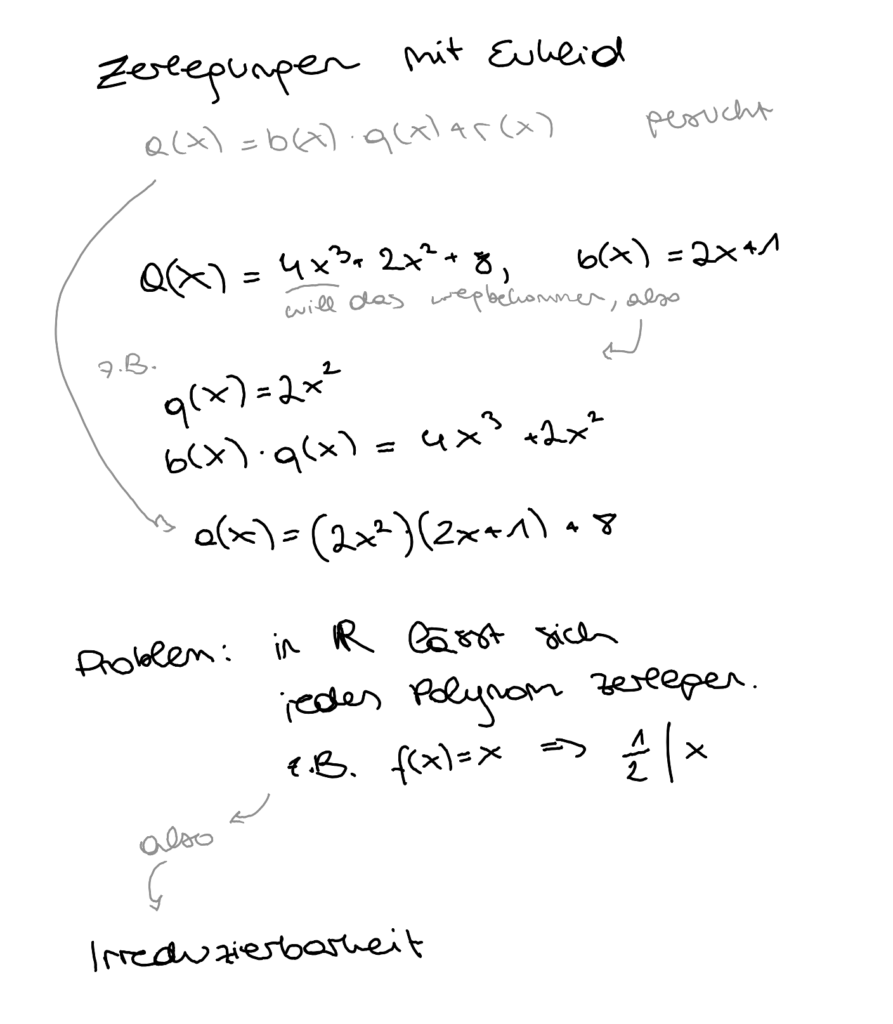 Zerlegungen mit Euklid
a(x) = b(x) · q(x) + r(x) gesucht
a(x) = 4x³ + 2x² + 8, b(x) = 2x + 1
will das wegbekommen, also
z.B.
q(x) = 2x²
b(x) · q(x) = 4x³ + 2x²
a(x) = (2x²)(2x+1) + 8
Problem: in ℝ lässt sich
jedes Polynom zerlegen.
z.B. f(x) = x ⇒ 1/2 | x
also
Irreduzierbarkeit